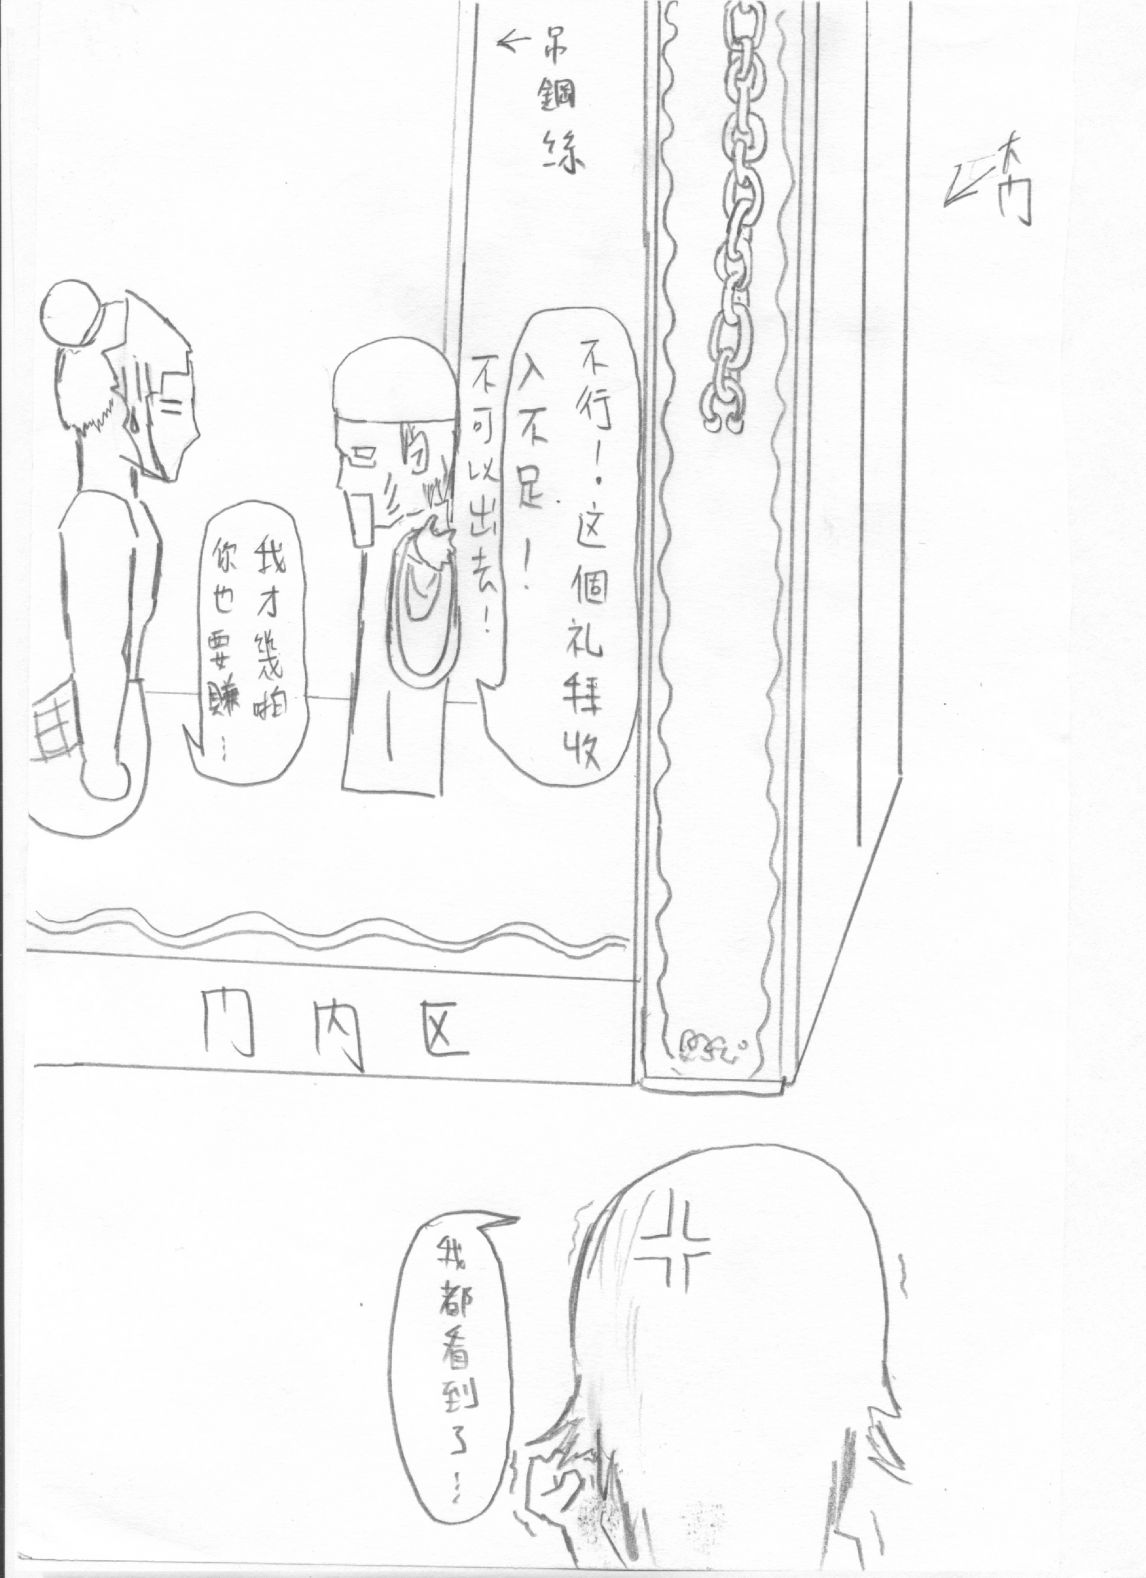 大门
吊鋼絲
不行！这個礼拜收
入不足！
不可以出去！
我才幾啪
你也要賺…
门内区
我都看到了…